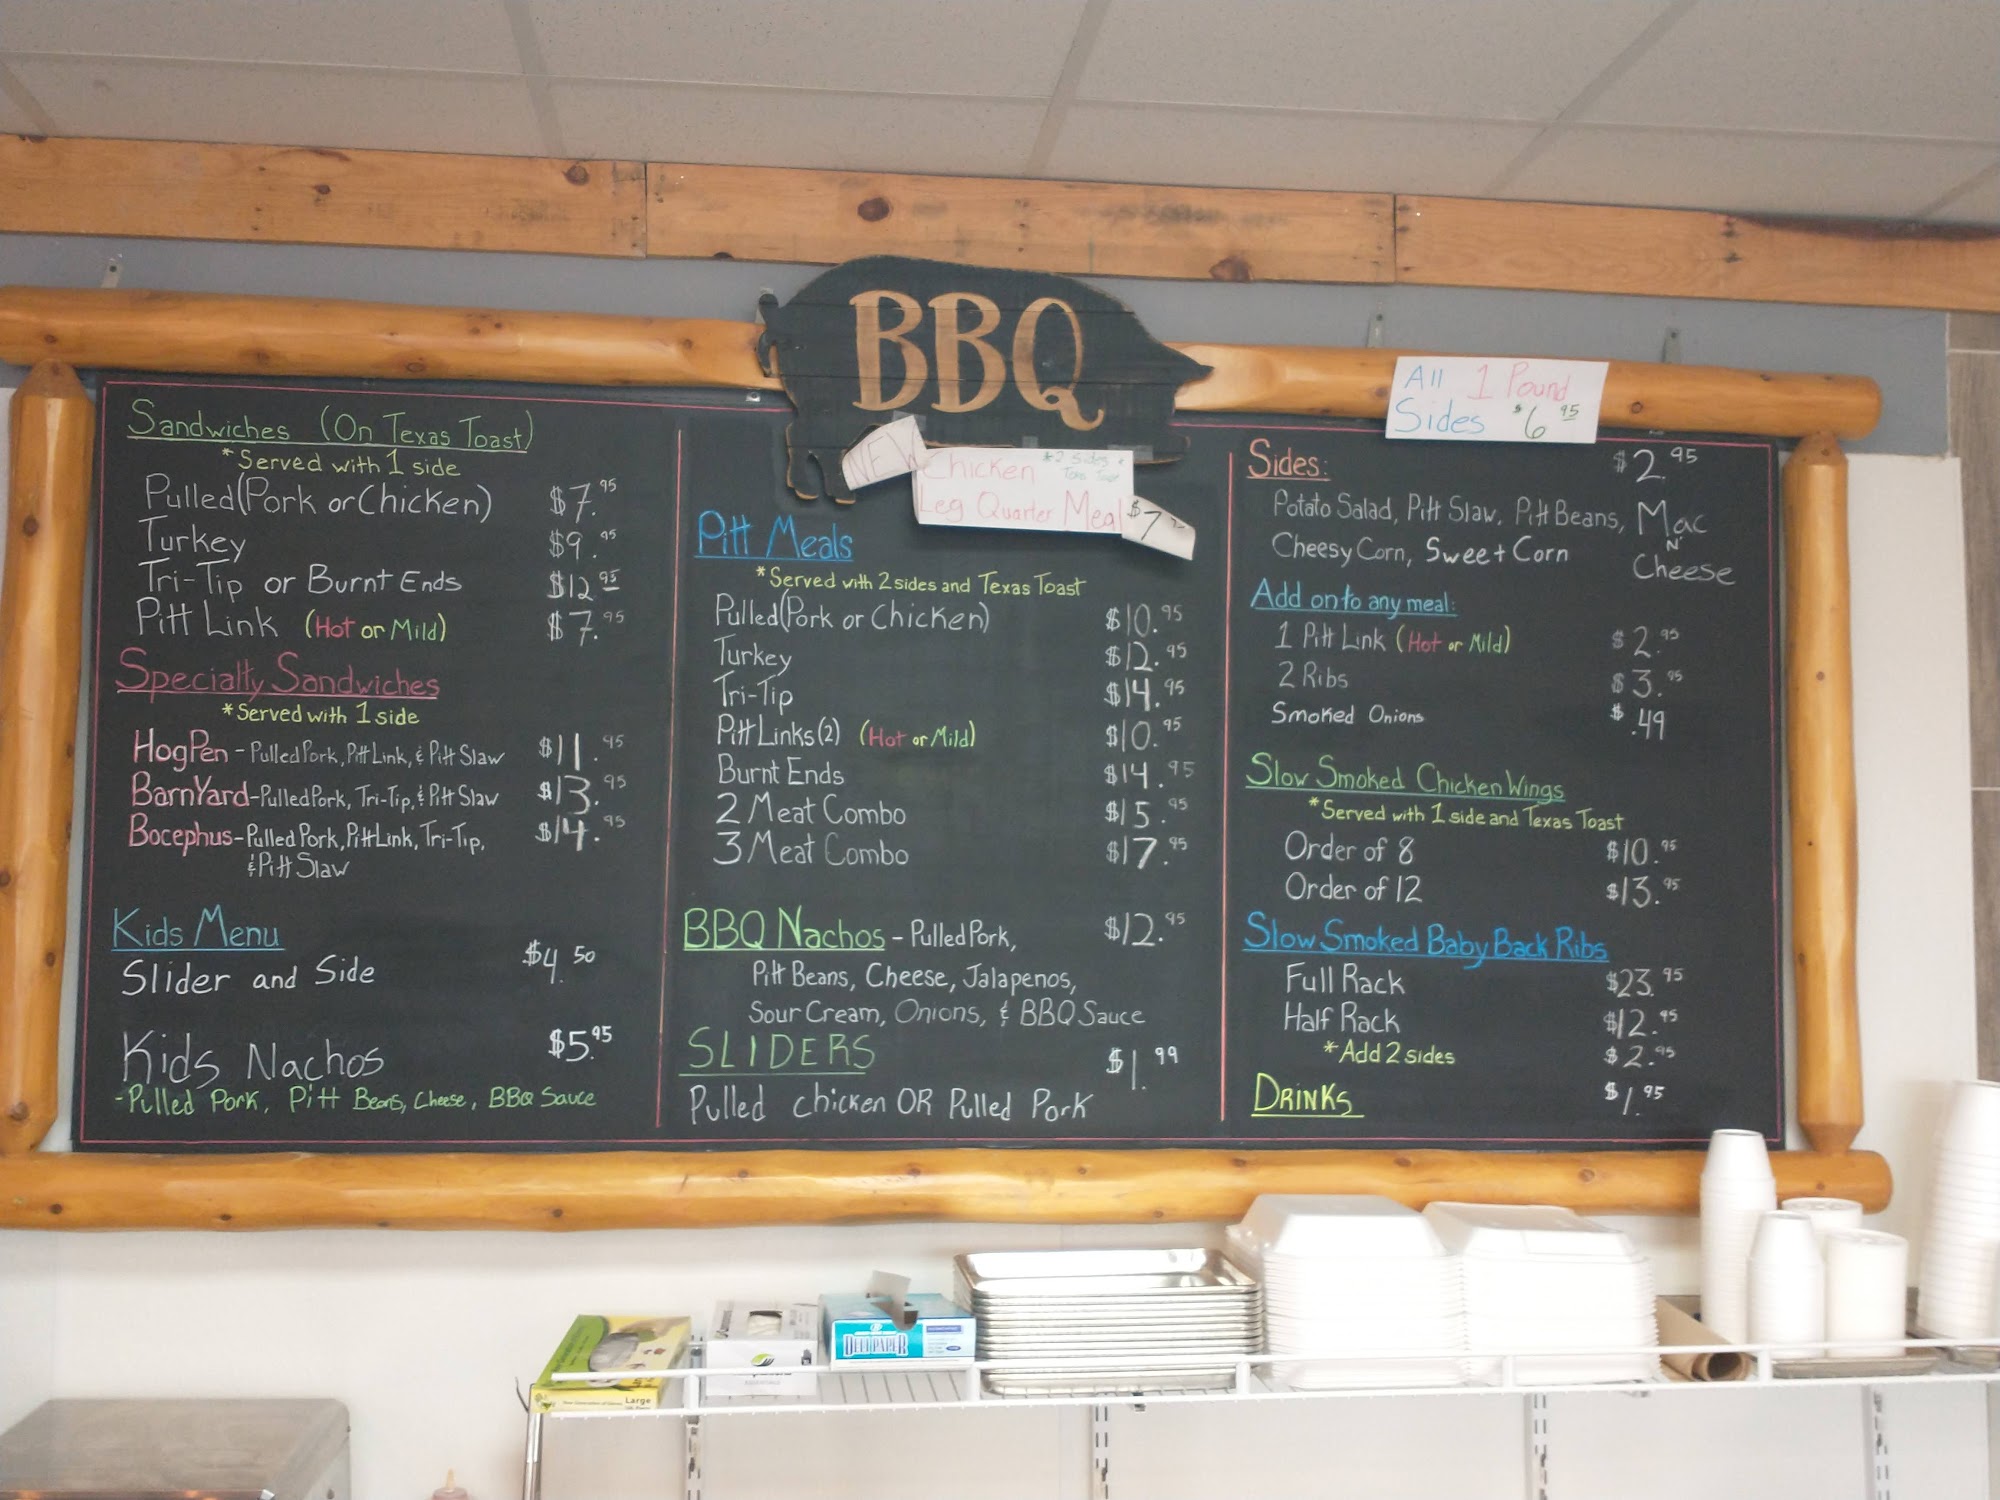 BBQ
NEW Chicken *2 sides +
Leg Quarter Meal $7
All 1 Pound
Sides $6.95
Sandwiches (On Texas Toast)
*Served with 1 side
Pulled (Pork or Chicken) $7.95
Turkey $9.95
Tri-Tip or Burnt Ends $12.95
Pitt Link (Hot or Mild) $7.95
Specialty Sandwiches
*Served with 1 side
HogPen - Pulled Pork, Pitt Link, & Pitt Slaw $11.95
BarnYard - Pulled Pork, Tri-Tip, & Pitt Slaw $13.95
Bocephus - Pulled Pork, Pitt Link, Tri-Tip, $14.95
& Pitt Slaw
Kids Menu
Slider and Side $4.50
Kids Nachos $5.95
-Pulled Pork, Pitt Beans, Cheese, BBQ Sauce
Pitt Meals
*Served with 2 sides and Texas Toast
Pulled (Pork or Chicken) $10.95
Turkey $12.95
Tri-Tip $14.95
Pitt Links (2) (Hot or Mild) $10.95
Burnt Ends $14.95
2 Meat Combo $15.95
3 Meat Combo $17.95
BBQ Nachos - Pulled Pork, $12.95
Pitt Beans, Cheese, Jalapenos,
Sour Cream, Onions, & BBQ Sauce
SLIDERS $1.99
Pulled chicken OR Pulled Pork
Sides: $2.95
Potato Salad, Pitt Slaw, Pitt Beans, Mac
N'
Cheesy Corn, Sweet Corn Cheese
Add on to any meal:
1 Pitt Link (Hot or Mild) $2.95
2 Ribs $3.95
Smoked Onions $.49
Slow Smoked Chicken Wings
*Served with 1 side and Texas Toast
Order of 8 $10.95
Order of 12 $13.95
Slow Smoked Baby Back Ribs
Full Rack $23.95
Half Rack $12.95
*Add 2 sides $2.95
DRINKS $1.95
DELI PAPER
Large